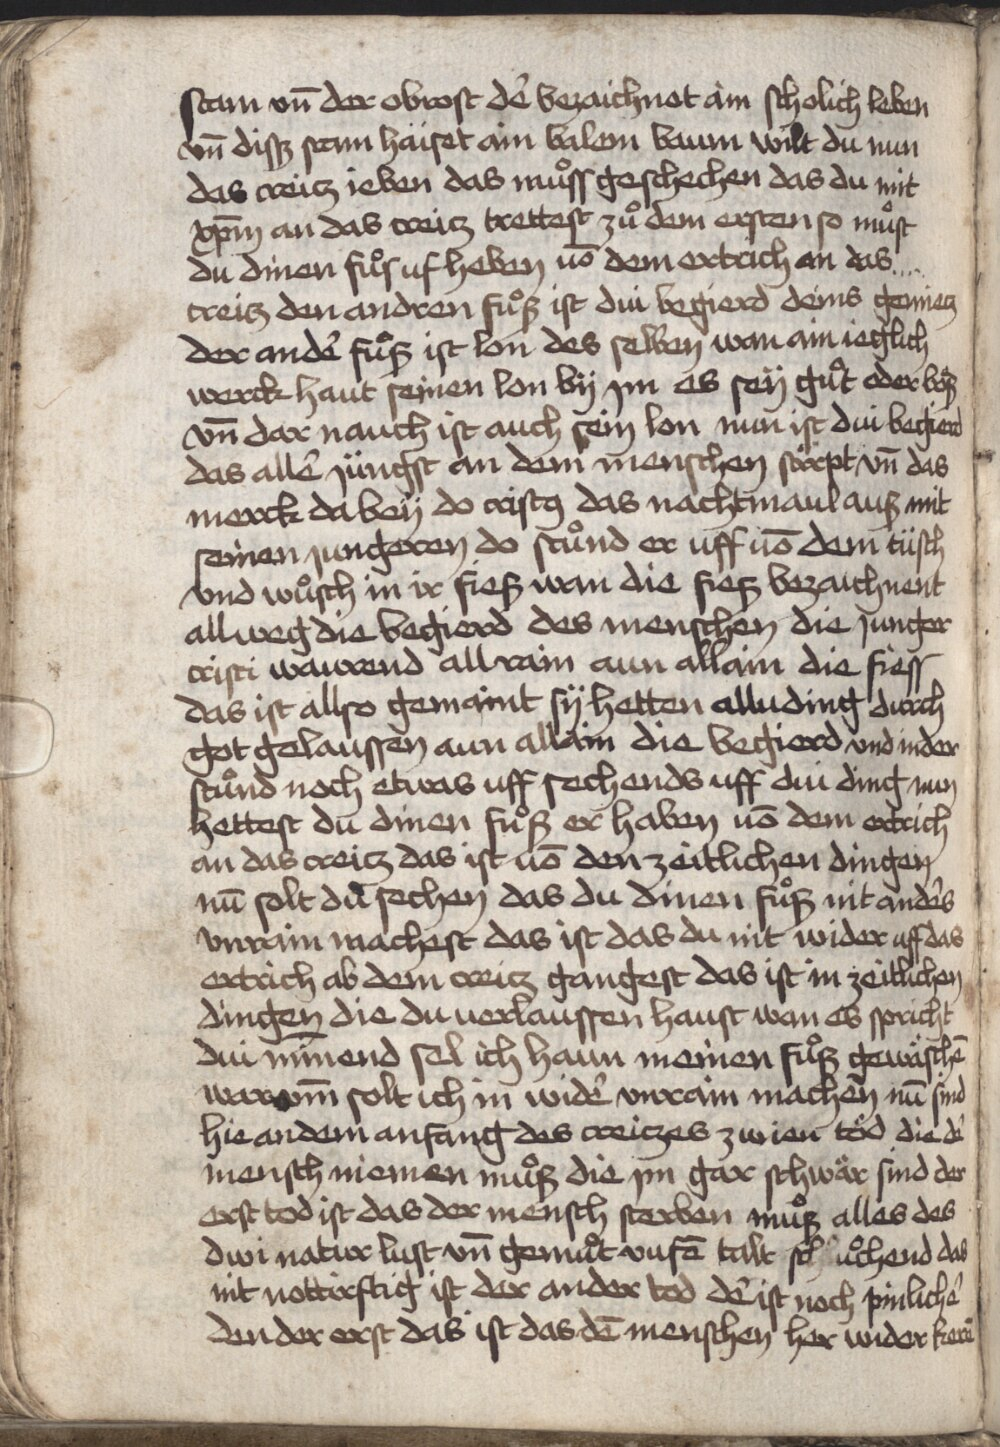 stam vn̄ der obrost dˀ bezaichnot ain scholich leben
vn̄ disß stam haiset ain balem baum wilt du nun
das creitz ieben das muͦss geschechen das du mit
xp̄m an das creitz trettest zuͦ dem ersten so muͦst
du dinen fuͦs uf heben uō dem ertrich an das
creitz den andren fuͦß ist dui begierd deins gemietz
der andˀ fuͦß ist lon des selben wan ain ieglich
werck haut seinen lon bÿ jm es seÿ guͦt oder boͤß
vn̄ dar nauch ist auch sein lon nun ist dui begierd
das allˀ jüngst an dem menschen störpt vn̄ das
merck da beÿ do cristꝯ das nachtmaul auß mit
seinen jungeren do stuͦnd er uff uō dem tüsch
vnd wuͦsch in ir fieß wan die fieß bezaichnent
all weg die begierd des menschen die junger
cristi waurend all rain aun allain die fiess
das ist allso gemaint sÿ hetten allu ding durch
got gelaussen aun allain die begierd und in der
stuͦnd noch etwas uff sechends uff dui ding nun
hettest du dinen fuͦß er haben uō dem ertrich
an das creitz das ist uō den zeitlichen dingen
nū solt du sechen das du dinen fuͦß nit andˀs
vnrain machest das ist das du nit wider uff das
ertrich ab dem creitz gangest das ist in zeitlichen
dingen die du uerlaussen haust wan es spricht
dui minend sel ich haun meinen fuͦß gewäschē
war vm̄ solt ich in widˀ vnrain machen nū sind
hie an dem anfang des creitzes zwien töd die dˀ
mensch niemen muͦß die jm gar schwär sind der
erst tod ist das der mensch sterben muͦß alles des
dwi natur lust vn̄ gemuͦt talt uͦchend das
nit nottirftig ist der ander tod dˀ ist noch pinlichˀ
den der erst das ist das dē menschen her wider kerē